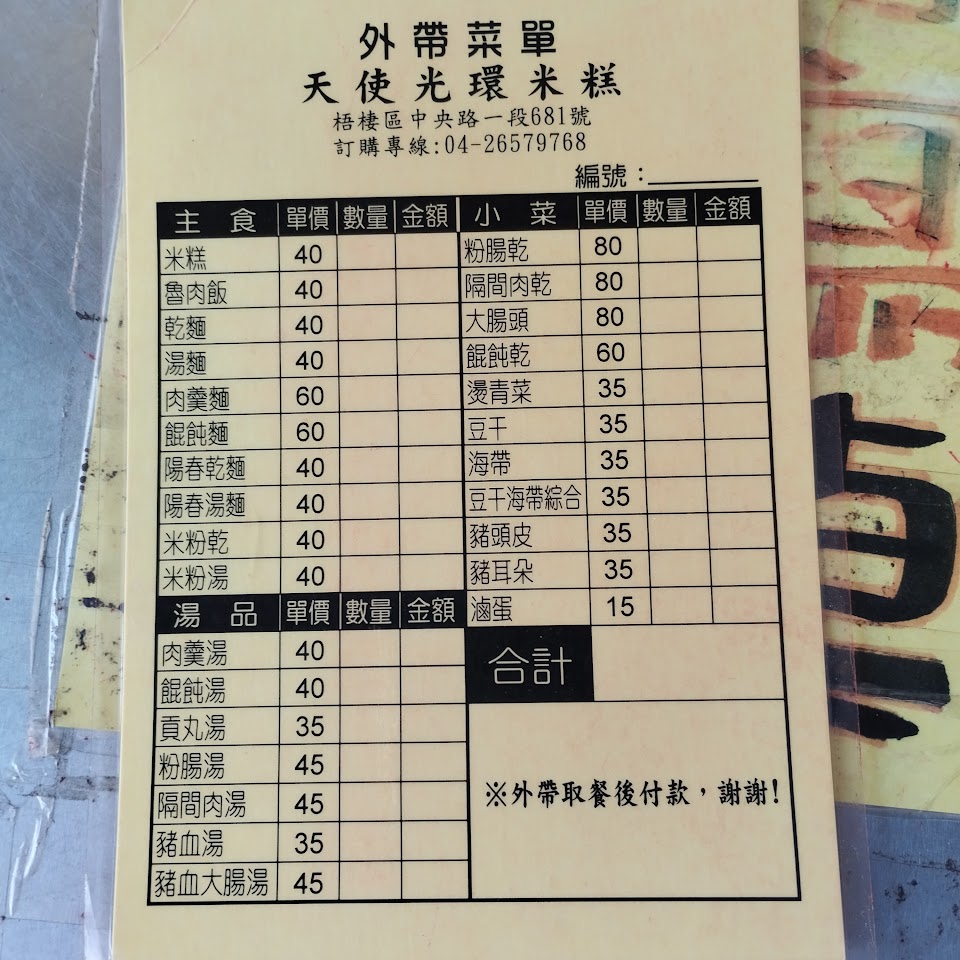 外帶菜單
天使光環米糕
梧棲區中央路一段681號
訂購專線:04-26579768
編號：
主食 單價 數量 金額
米糕 40
魯肉飯 40
乾麵 40
湯麵 40
肉羹麵 60
餛飩麵 60
陽春乾麵 40
陽春湯麵 40
米粉乾 40
米粉湯 40
湯品 單價 數量 金額
肉羹湯 40
餛飩湯 40
貢丸湯 35
粉腸湯 45
隔間肉湯 45
豬血湯 35
豬血大腸湯 45
小菜 單價 數量 金額
粉腸乾 80
隔間肉乾 80
大腸頭 80
餛飩乾 60
燙青菜 35
豆干 35
海帶 35
豆干海帶綜合 35
豬頭皮 35
豬耳朵 35
滷蛋 15
合計
※外帶取餐後付款，謝謝!